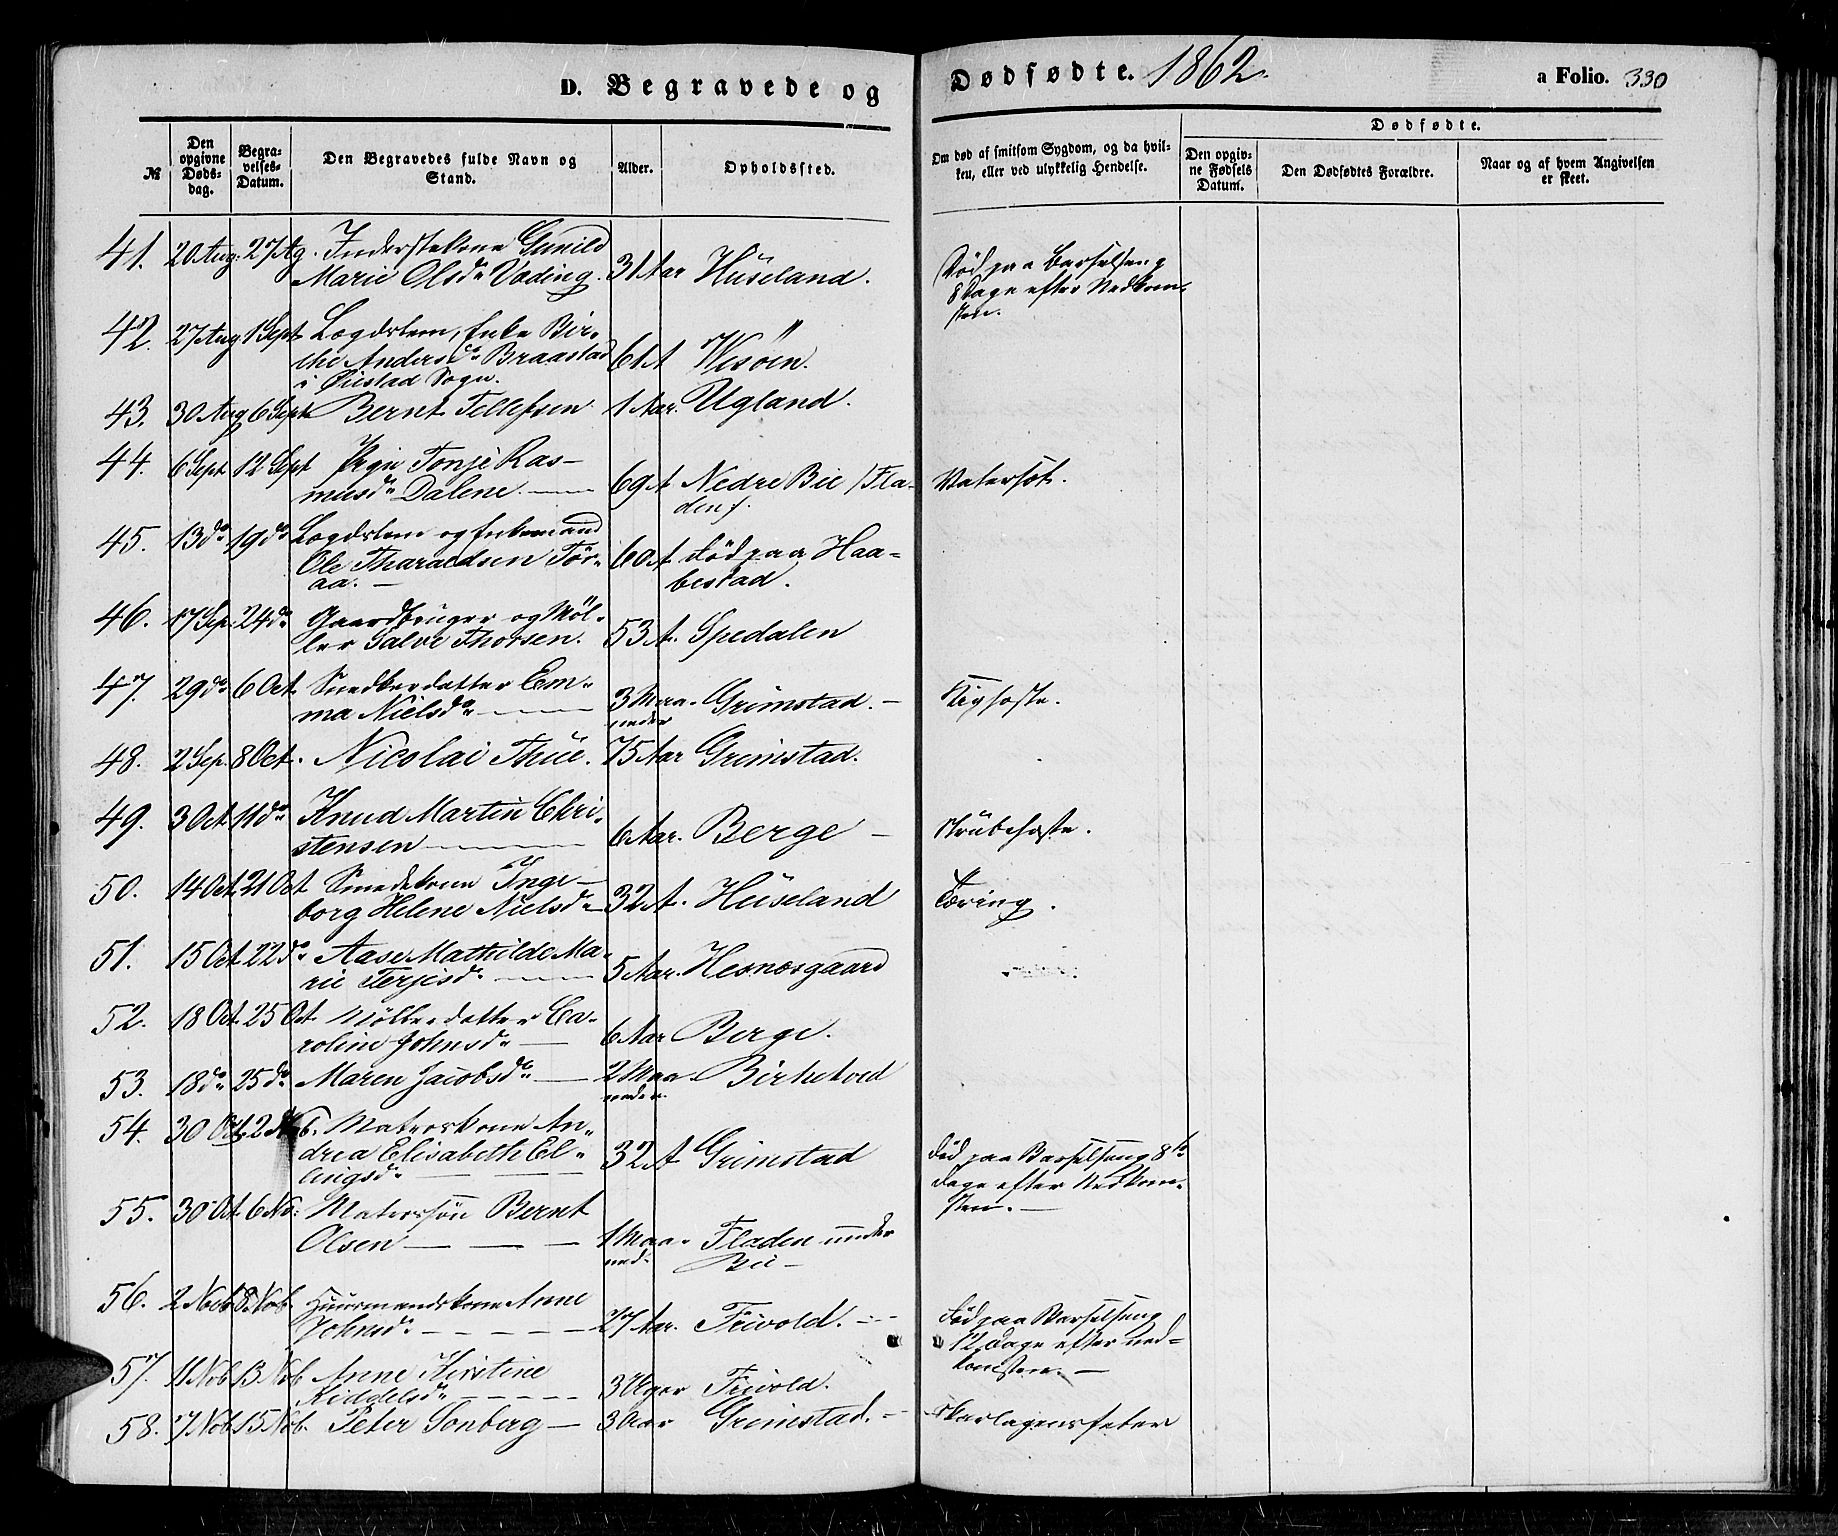 D. Begravede og Dødfødte. 1862. a Folio. 330
№
Den opgivne Døds-dag.
Begra-velses-Datum.
Den Begravedes fulde Navn og Stand.
Alder.
Opholdssted.
Om død af smitsom Sygdom, og da hvil-
ken, eller ved ulykkelig Hendelse.
Dødfødte.
Den opgiv-ne Fødsels Datum.
Den Dødfødtes Forældre.
Naar og af hvem Angivelsen er skeet.
41. 20 Aug. 27 Ag. Inderstekone Gunild
Marie Olsdr Vading. 31 Aar Hüseland. Död paa Barselseng
8 Dage efter Nedkom-
sten.
42. 27 Aug 1 Sept Lægdslem, Enke Bir-
the Andersdr Braastad 61 A Wesöen.
i Øiestad Sogn.
43. 30 Aug 6 Sept Bernt Tellefsen 1 Aar. Ugland.
44. 6 Sept 12 Sept Pige Tonje Ras-
musdr Dalene. 69 A Nedre Bie /Fla- Vatersot.
den/.
45. 13 do 19 do Lægdslem og Enkemand
Ole Tharaldsen Tör- 60 A död paa Haa-
aa. bestad.
46. 17 Sep. 24 do Gaardbruger og Möl-
ler Salve Thorsen. 53 A. Spedalen
47. 29 do 6 Oct. Snedkerdatter Em-
ma Nielsdr 3 Maa- Grimstad. Kighoste.
neder
48. 2 Sep. 8 Oct. Nicolai Thüe. 75 Aar Grimstad.
49. 3 Oct 11 do Knud Martin Chri-
stensen 6 Aar. Berge Strübehoste.
50. 14 Oct. 21 Oct Smedekone Inge-
borg Helene Nielsdr 32 A. Hüseland Tæring.
51. 15 Oct. 22 do Aase Mathilde Ma-
rie Terjesdr 5 Aar. Hesnesgaard
52. 18 Oct. 25 Oct. Möllerdatter Ca-
roline Johnsdr 6 Aar Berge.
53. 18 do 25 do Maren Jacobsdr 2 Maa- Birketved
neder.
54. 30 Oct. 6. Matroskone An-
drea Elisabeth El- 32 A Grimstad död paa Barselseng 8te
lingsdr Dage efter Nedkom-
sten.
55. 30 Oct. 6 No. Matrossön Bernt
Olsen 1 Maa- Fladen under
ned. Bie
56. 2 Nob. 8 Nob. Huusmandskone Anne
Johnsdr 27 Aar. Frivold. död paa Barselseng
12 Dage efter ned-
komsten.
57. 11 Nob 13 Nob Anne Kirstine
Kiddelsdr 3 Uger Frivold.
58. 7 Nob 15 Nob. Peter Sonberg 3 Aar Grimstad. Skarlagensfeber